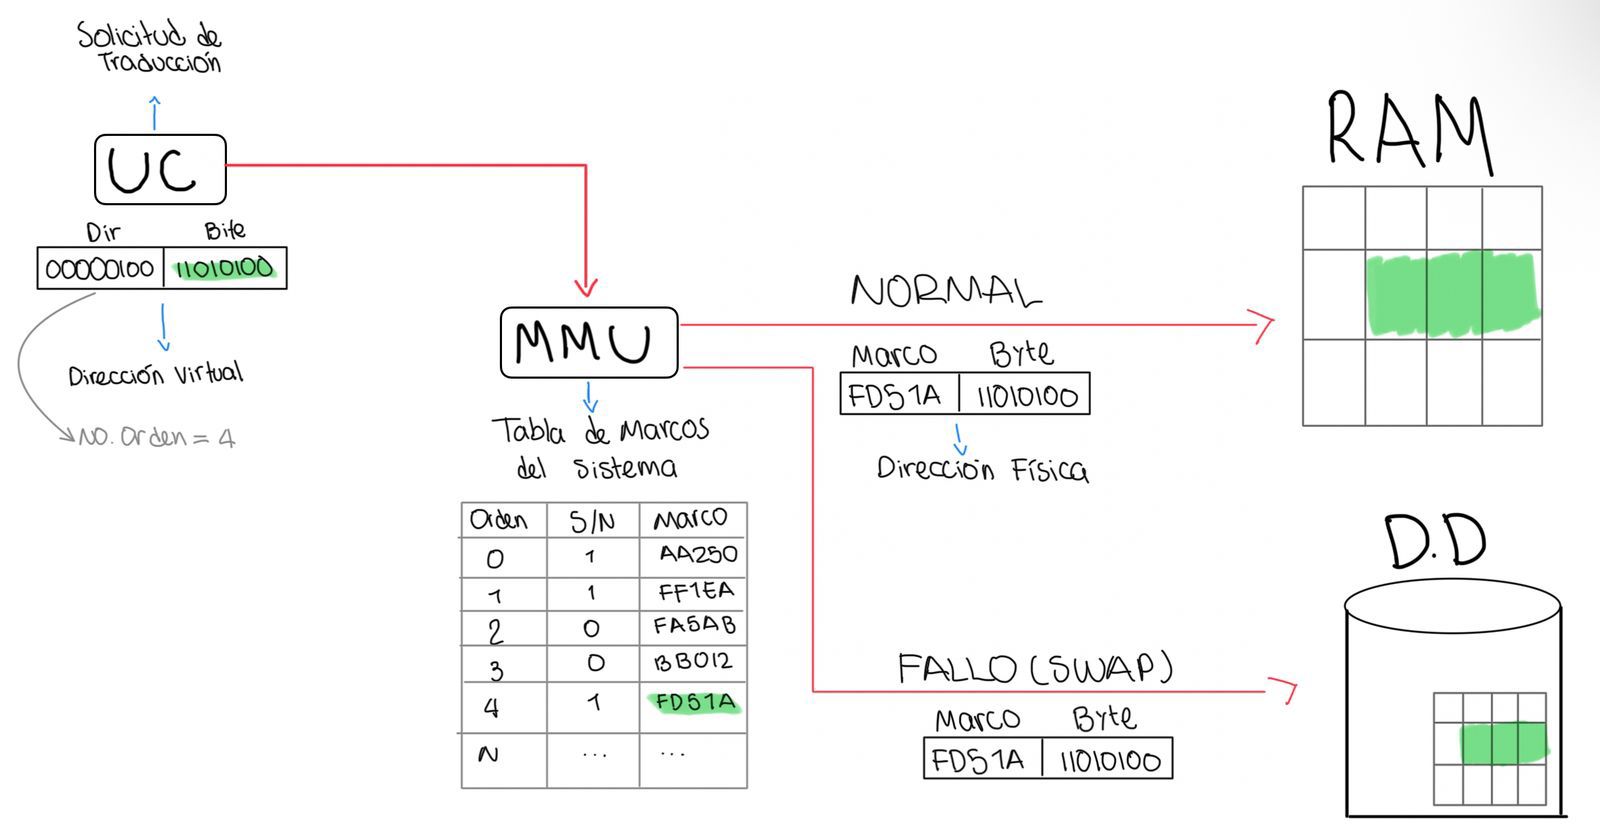 Solicitud de
Traducción
UC
Dir Bite
00000100 11010100
Dirección Virtual
No. Orden = 4
MMU
Tabla de Marcos
del Sistema
Orden S/N Marco
0 1 AA250
1 1 FF1EA
2 0 FA5AB
3 0 BB012
4 1 FD51A
N ... ...
NORMAL
Marco Byte
FD51A 11010100
Dirección Física
FALLO (SWAP)
Marco Byte
FD51A 11010100
RAM
D.D